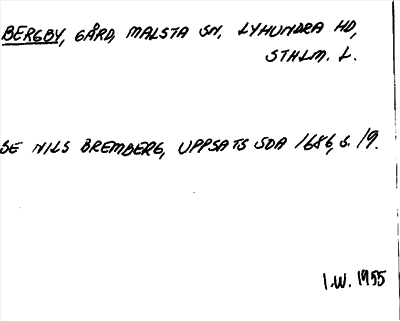 BERGBY, GÅRD, MALSTA SN, LYHUNDRA HD,
STHLM. L.
SE NILS BREMBERG, UPPSATS SOA 1686, S. 19.
I.W. 1955